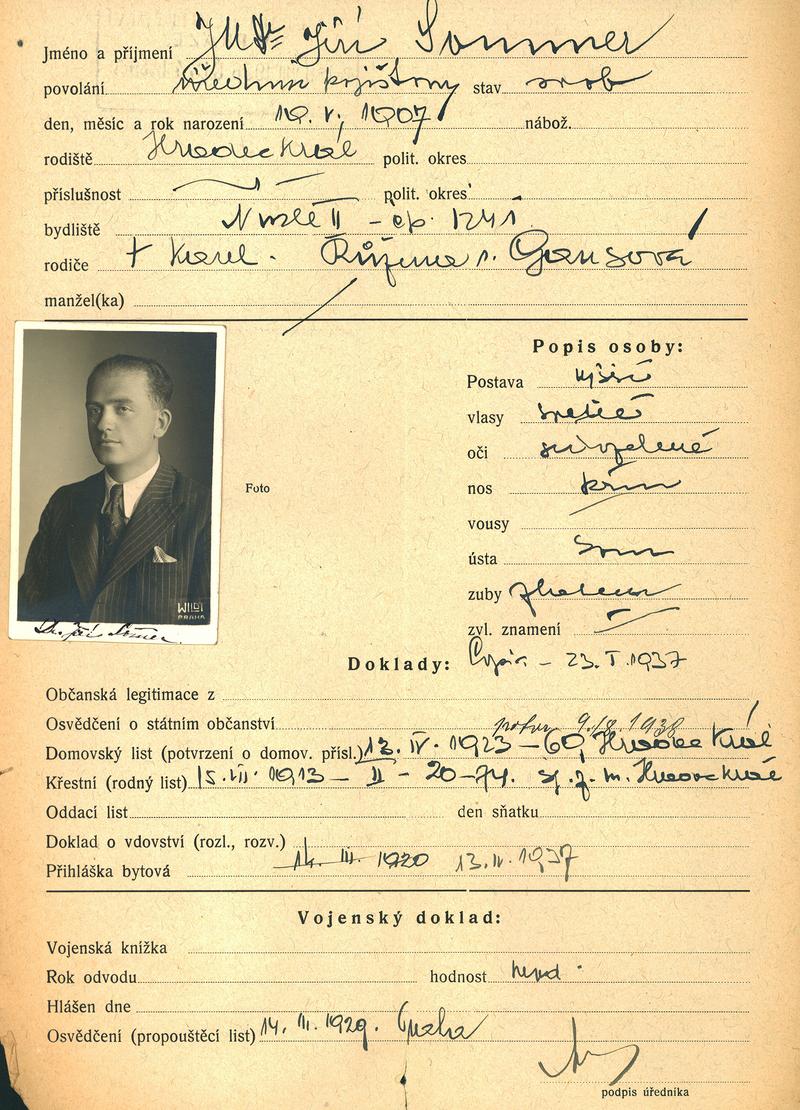 Jméno a příjmení JUDr Jiří Sommer
povolání pojišťovny stav svob
den, měsíc a rok narození 19. V. 1907 nábož.
rodiště Hradec Král polit. okres
příslušnost polit. okres
bydliště Nusle II - čp. 1241
rodiče † Karel. Růžena r. Gansová
manžel(ka)
Popis osoby:
Postava vyšší
vlasy světlé
oči
nos
Foto
vousy
ústa
zuby
zvl. znamení
WILDT
PRAHA
Dr. Jiří Sommer
Doklady: - 23. I. 1937
Občanská legitimace z
Osvědčení o státním občanství potvr 9./8. 1938
Domovský list (potvrzení o domov. přísl.) 13. IV. 1923 - 60, Hradec Král
Křestní (rodný list) 15. VII. 1913 - II - 20-74. Hradec Král
Oddací list den sňatku
Doklad o vdovství (rozl., rozv.)
Přihláška bytová 14. III. 1920 13. IV. 1937
Vojenský doklad:
Vojenská knížka
Rok odvodu hodnost nevoj.
Hlášen dne
Osvědčení (propouštěcí list) 14. III. 1929. Praha
podpis úředníka